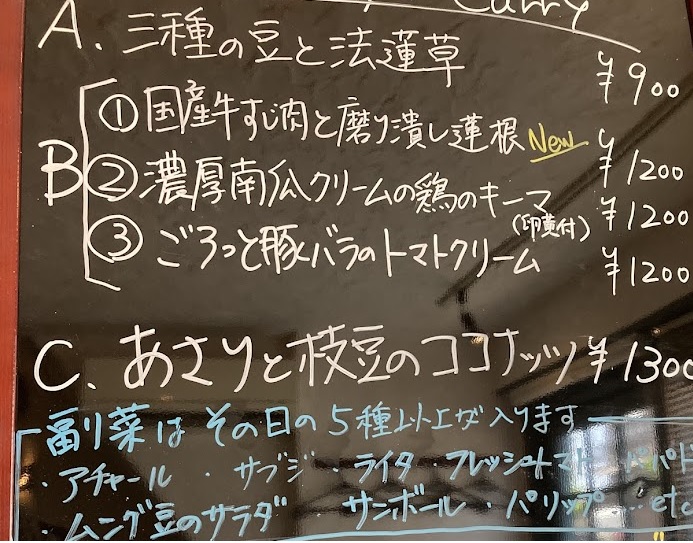 Curry
A. 三種の豆と法蓮草 ¥900
B ① 国産牛すじ肉と磨り潰し蓮根 New ¥1200
② 濃厚南瓜クリームの鶏のキーマ (卵黄付) ¥1200
③ ごろっと豚バラのトマトクリーム ¥1200
C. あさりと枝豆のココナッツ ¥1300
副菜はその日の5種以上が入ります
・アチャール ・サブジ ・ライタ ・フレッシュトマト ・パパド
・ムング豆のサラダ サンボール ・パリップ …etc